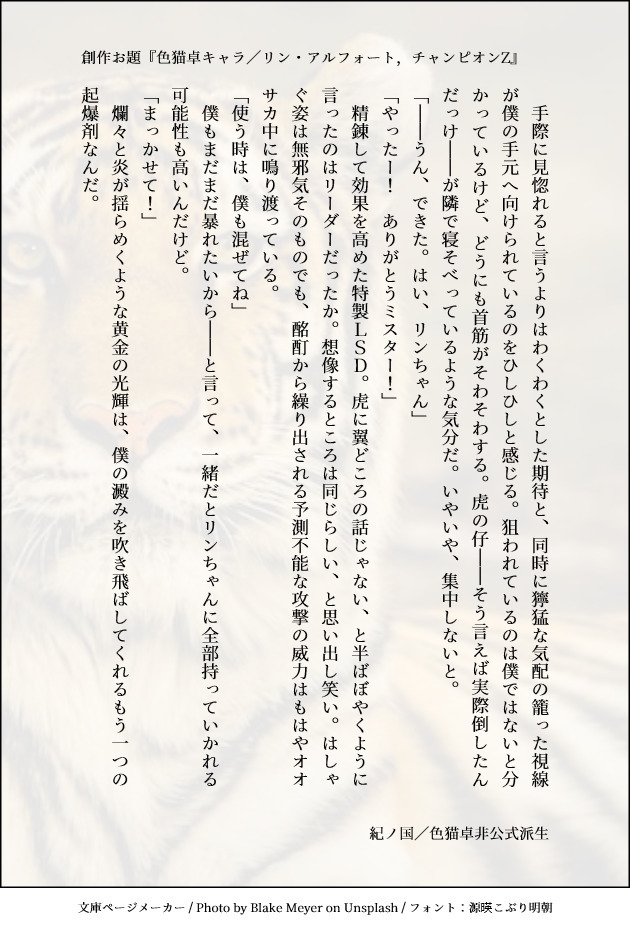 創作お題『色猫卓キャラ／リン・アルフォート，チャンピオンZ』
　手際に見惚れると言うよりはわくわくとした期待と、同時に獰猛な気配の籠った視線
が僕の手元へ向けられているのをひしひしと感じる。狙われているのは僕ではないと分
かっているけど、どうにも首筋がそわそわする。虎の仔――そう言えば実際倒したん
だっけ――が隣で寝そべっているような気分だ。いやいや、集中しないと。
「――うん、できた。はい、リンちゃん」
「やったー！　ありがとうミスター！」
　精錬して効果を高めた特製ＬＳＤ。虎に翼どころの話じゃない、と半ばぼやくように
言ったのはリーダーだったか。想像するところは同じらしい、と思い出し笑い。はしゃ
ぐ姿は無邪気そのものでも、酩酊から繰り出される予測不能な攻撃の威力はもはやオオ
サカ中に鳴り渡っている。
「使う時は、僕も混ぜてね」
　僕もまだまだ暴れたいから――と言って、一緒だとリンちゃんに全部持っていかれる
可能性も高いんだけど。
「まっかせて！」
　爛々と炎が揺らめくような黄金の光輝は、僕の澱みを吹き飛ばしてくれるもう一つの
起爆剤なんだ。
紀ノ国／色猫卓非公式派生
文庫ページメーカー / Photo by Blake Meyer on Unsplash / フォント：源暎こぶり明朝